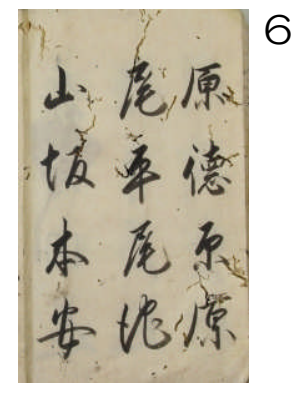 6
原德原
尾平尾
山坂本安